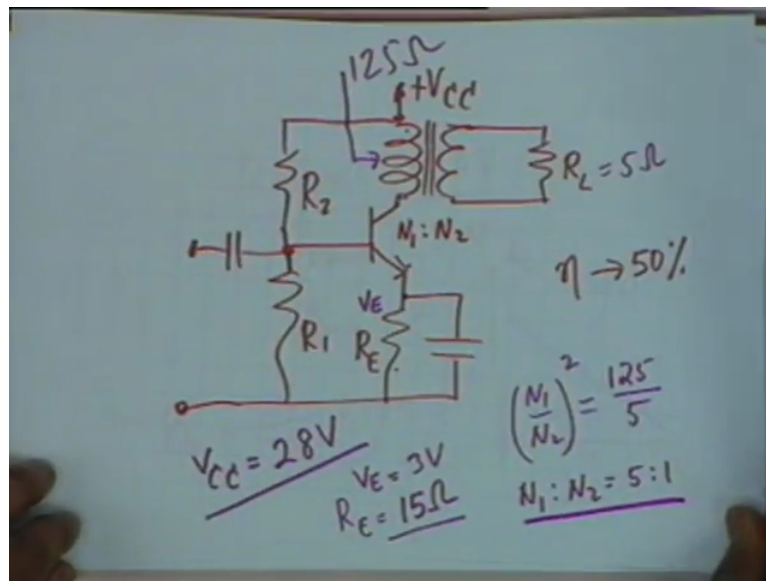 125Ω
+VCC
R2
RL = 5Ω
N1 : N2
η → 50%
VE
R1
RE
(N1/N2)² = 125/5
VCC = 28V
VE = 3V
RE = 15Ω
N1 : N2 = 5 : 1